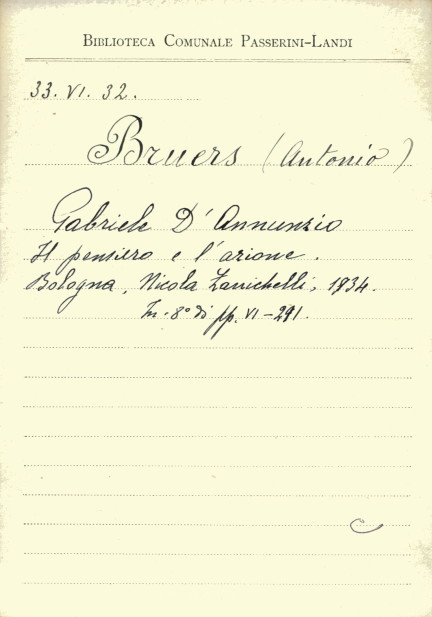 BIBLIOTECA COMUNALE PASSERINI-LANDI
33. VI. 32.
Bruers (Antonio)
Gabriele D'Annunzio
Il pensiero e l'azione.
Bologna, Nicola Zanichelli, 1934.
In-8° di pp. VI-291.